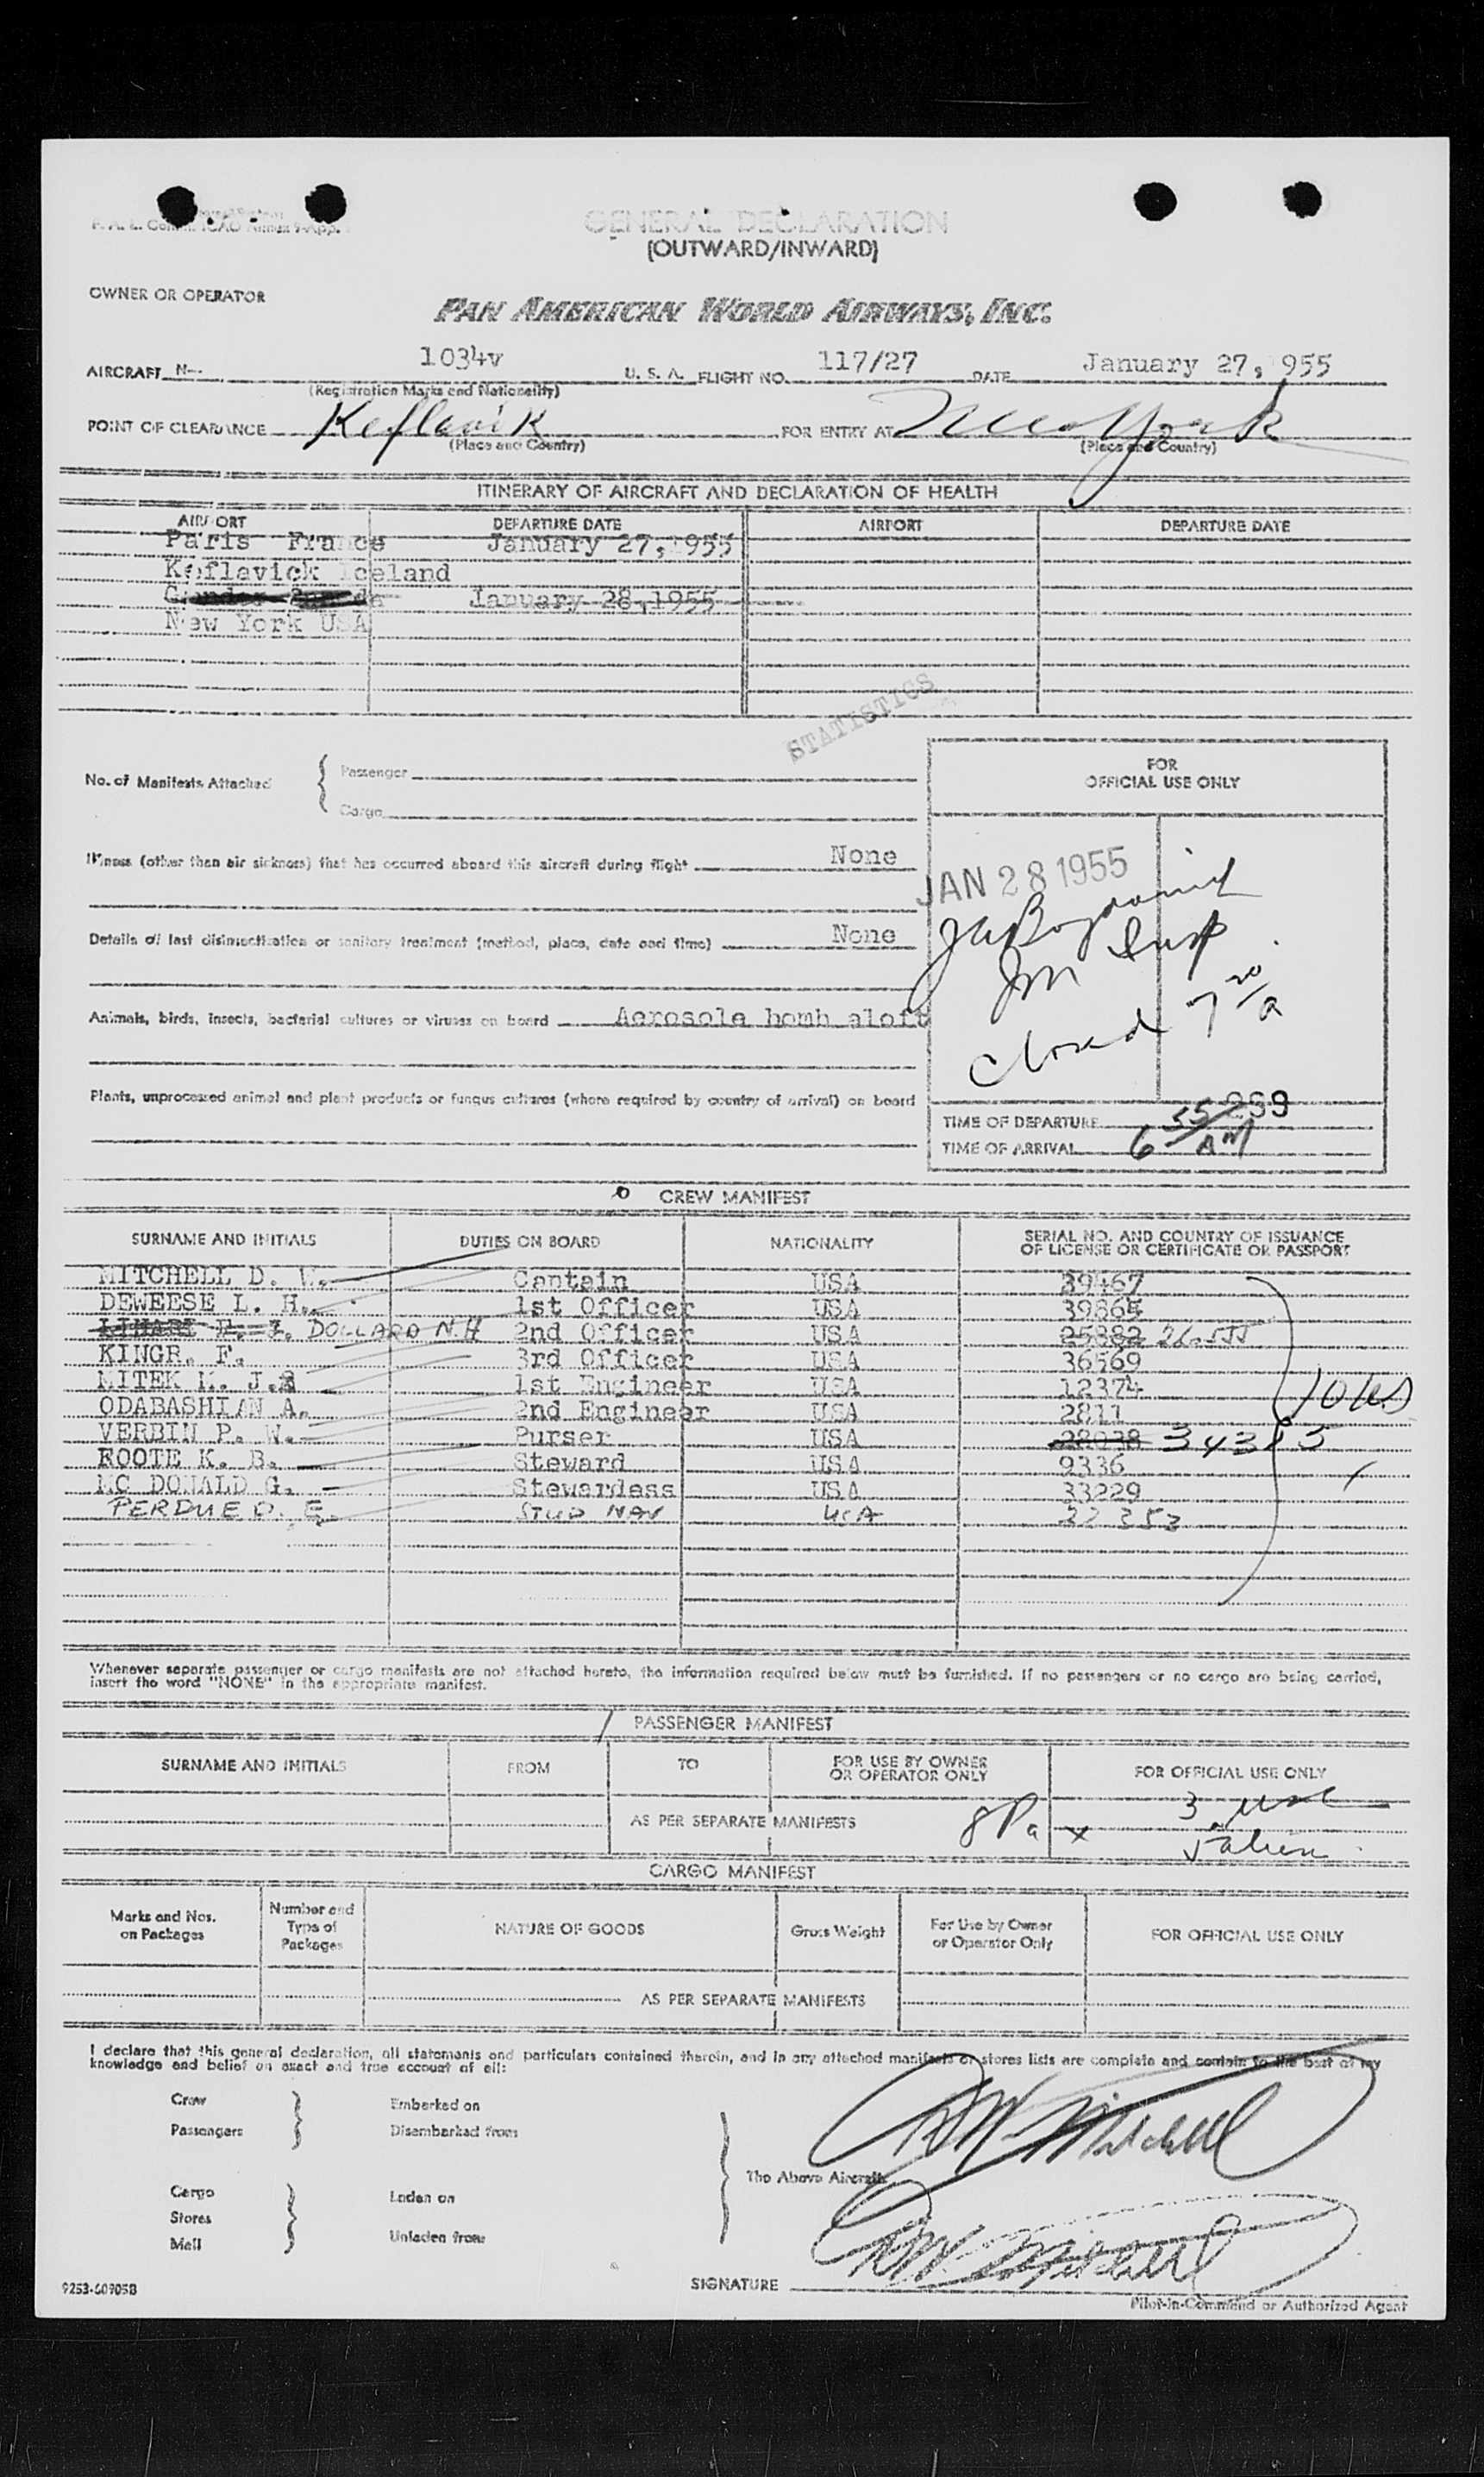 GENERAL DECLARATION
(OUTWARD/INWARD)
OWNER OR OPERATOR
PAN AMERICAN WORLD AIRWAYS, INC.
AIRCRAFT N-. 1034v U. S. A. FLIGHT NO. 117/27 DATE January 27, 955
(Registration Marks and Nationality)
POINT OF CLEARANCE Keflavik FOR ENTRY AT New York
(Place and Country) (Place and Country)
ITINERARY OF AIRCRAFT AND DECLARATION OF HEALTH
AIRPORT DEPARTURE DATE AIRPORT DEPARTURE DATE
Paris France January 27, 1955
Keflavick Iceland
January 28,1955
New York USA
STATISTICS
No. of Manifests Attached { Passenger
Cargo
FOR
OFFICIAL USE ONLY
Illness (other than air sickness) that has occurred aboard this aircraft during flight None
JAN 28 1955
Details of last disinsectization or sanitary treatment (method, place, date and time) None
Im Insp
Closed 7 20/a
Animals, birds, insects, bacterial cultures or viruses on board Aerosole bomb aloft
Plants, unprocessed animal and plant products or fungus cultures (where required by country of arrival) on board
TIME OF DEPARTURE
TIME OF ARRIVAL 6 55/AM
CREW MANIFEST
SURNAME AND INITIALS DUTIES ON BOARD NATIONALITY SERIAL NO. AND COUNTRY OF ISSUANCE
OF LICENSE OR CERTIFICATE OR PASSPORT
MITCHELL D. W. Captain USA 39467
DEWEESE L. H. 1st Officer USA 39865
DOLLARD N.H 2nd Officer USA 25382
KINGR. F. 3rd Officer USA 36569
MITEK M. J. 1st Engineer USA 12374
ODABASHIAN A. 2nd Engineer USA 2811
VERBIN P. W. Purser USA 28038 34385
FOOTE K. B. Steward USA 9336
MC DONALD G. Stewardess USA 33229
PERDUE O. E. STUD NAV USA 32353
10 US
Whenever separate passenger or cargo manifests are not attached hereto, the information required below must be furnished. If no passengers or no cargo are being carried,
insert the word "NONE" in the appropriate manifest.
PASSENGER MANIFEST
SURNAME AND INITIALS FROM TO FOR USE BY OWNER
OR OPERATOR ONLY FOR OFFICIAL USE ONLY
AS PER SEPARATE MANIFESTS 8 Pax 3 usc
5 alien
CARGO MANIFEST
Marks and Nos.
on Packages Number and
Type of
Packages NATURE OF GOODS Gross Weight For Use by Owner
or Operator Only FOR OFFICIAL USE ONLY
AS PER SEPARATE MANIFESTS
I declare that this general declaration, all statements and particulars contained therein, and in any attached manifests or stores lists are complete and contain to the best of my
knowledge and belief an exact and true account of all:
Crew Embarked on
Passengers Disembarked from
DW Mitchell
The Above Aircraft
Cargo Laden on
Stores
Mail Unladen from
DW Mitchell
SIGNATURE
9253-60905B
Pilot-in-Command or Authorized Agent